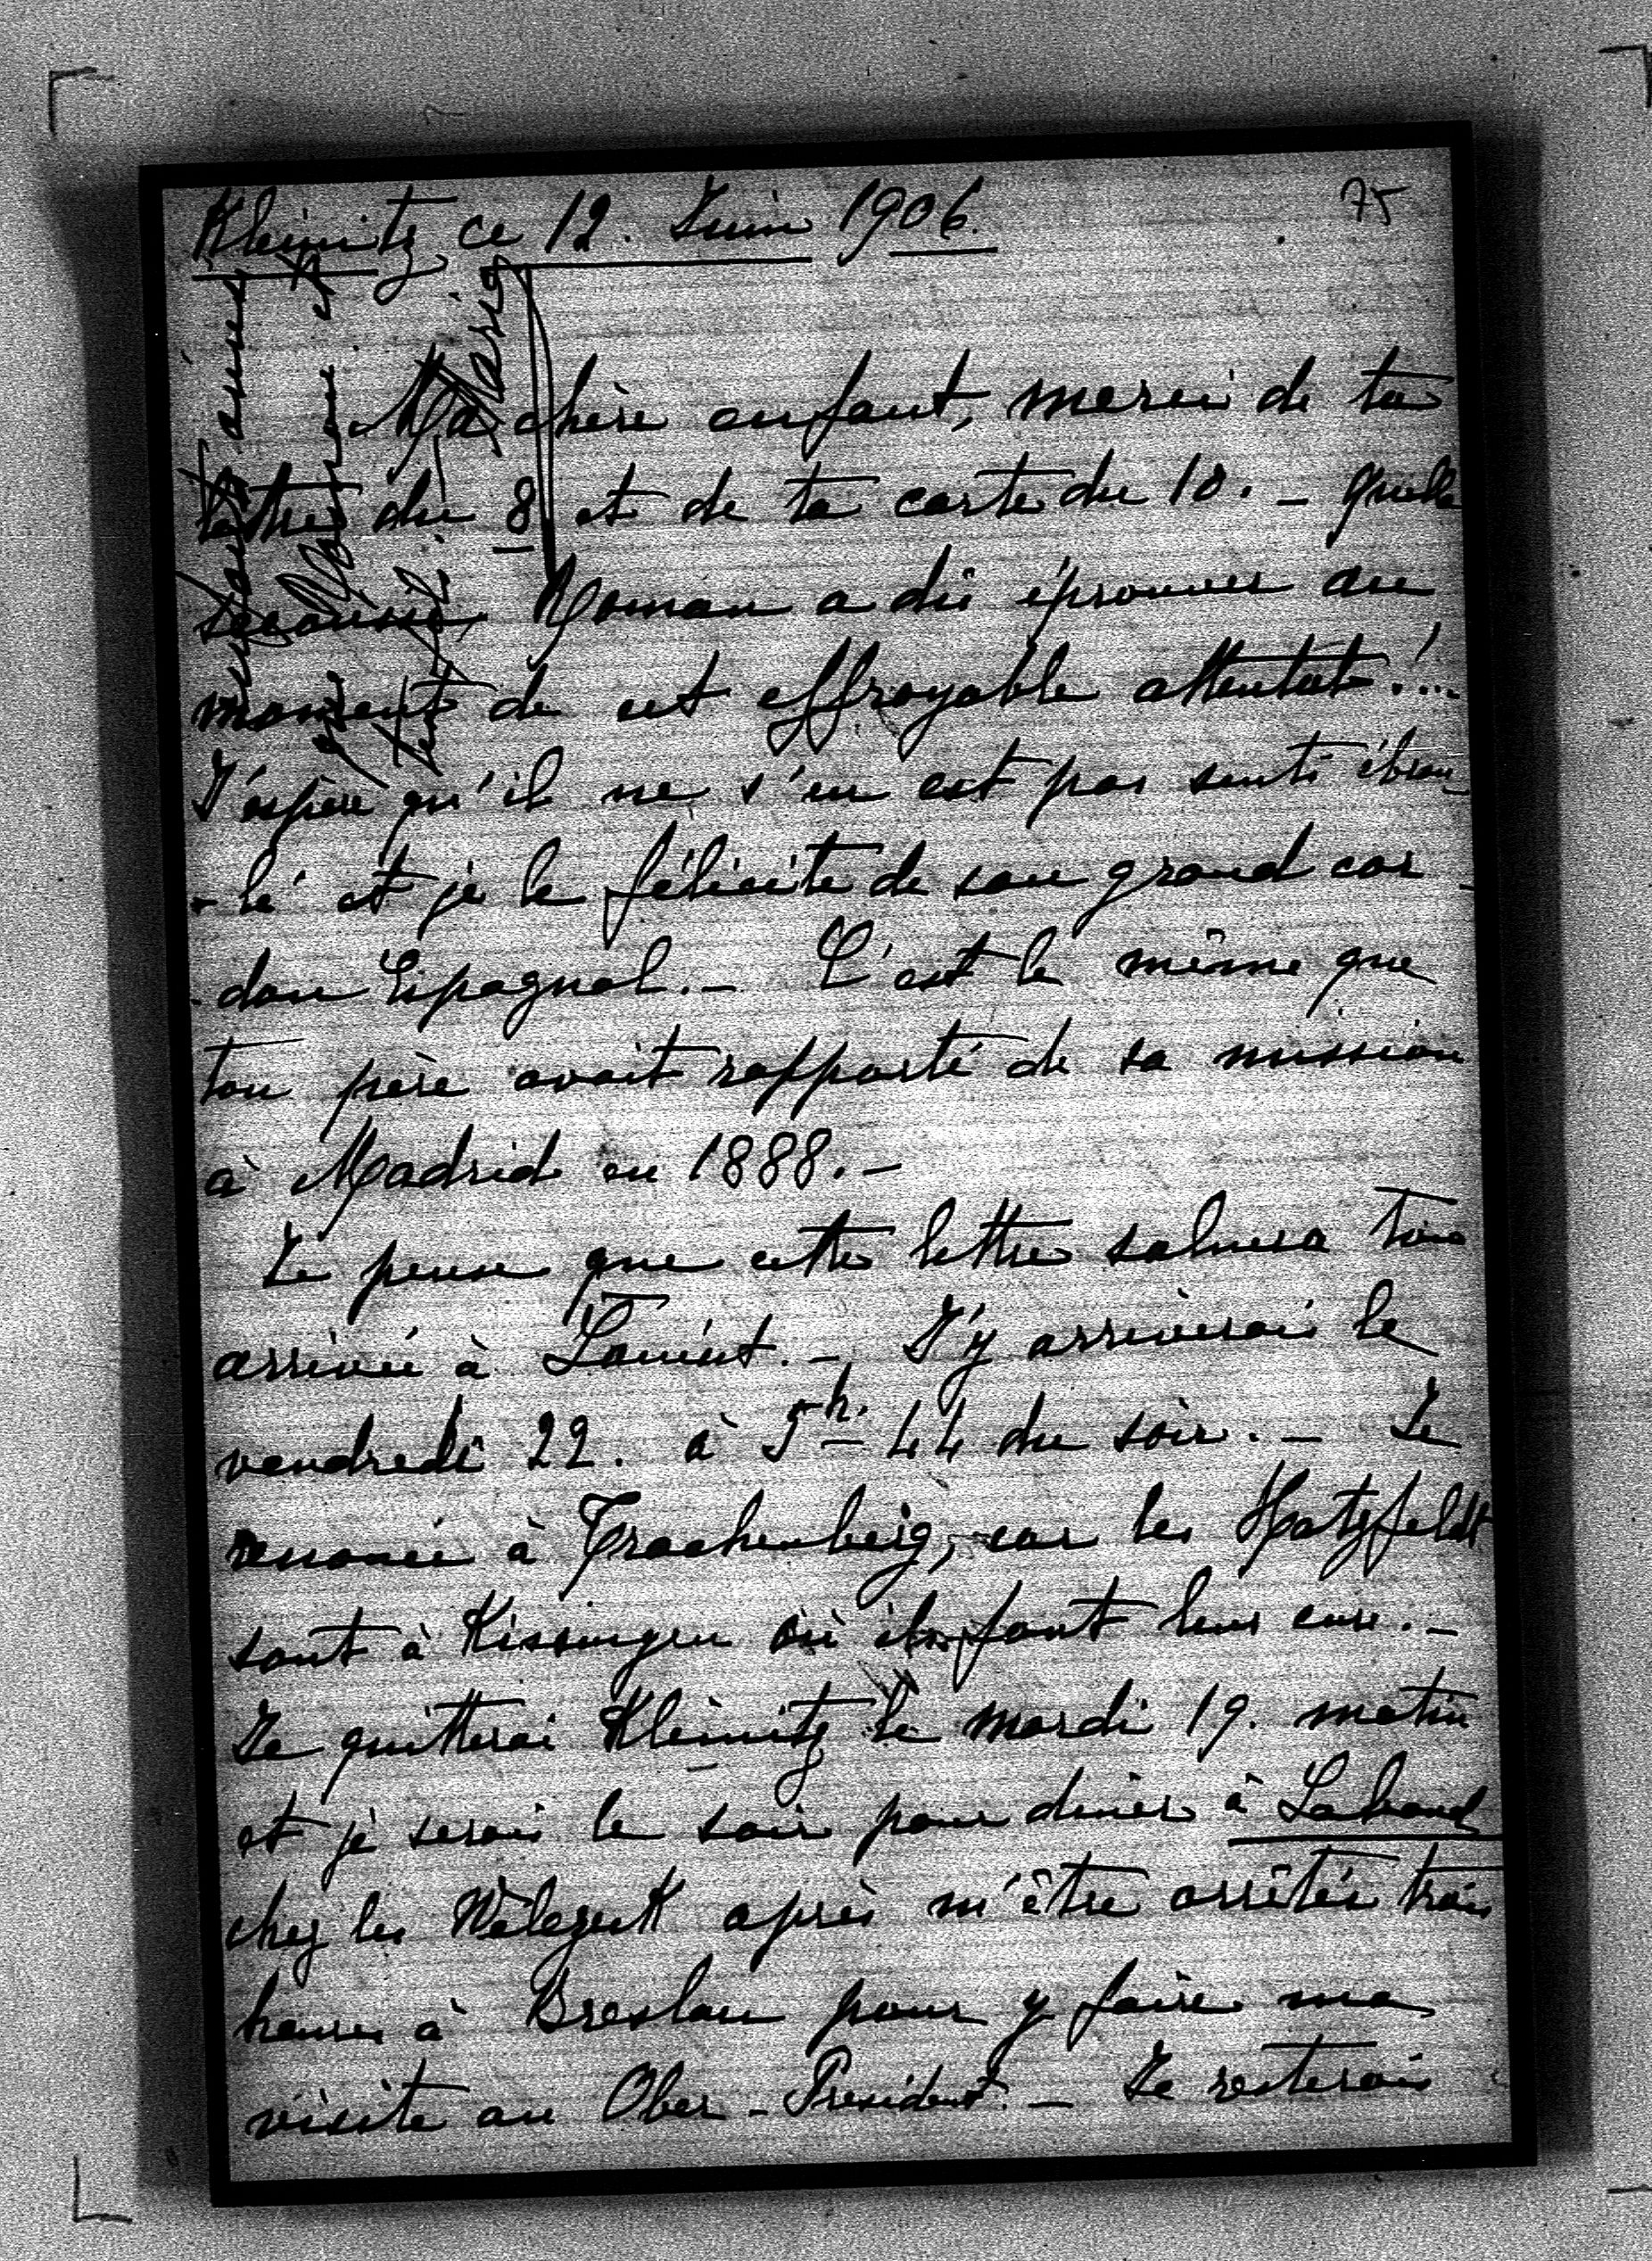 75
Kleinitz ce 12. Juin 1906.
Ma chère enfant, merci de ta
lettre du 8 et de ta carte du 10. — Quelle
secousse Roman a dû éprouver au
moment de cet effroyable attentat!...
J'espère qu'il ne s'en est pas senti ébran-
-lé et je le félicite de son grand cor-
-don Espagnol. — C'est le même que
ton père avait rapporté de sa mission
à Madrid en 1888. —
Je pense que cette lettre saluera ton
arrivée à Lancut. — J'y arriverai le
vendredi 22. à 5h. 44 du soir. — Je
renonce à Trachenberg, car les Hatzfeldt
sont à Kissingen où ils font leur cure. —
Je quitterai Kleinitz le mardi 19. matin
et je serai le soir pour diner à Laband
chez les Welczeck après m'être arrêtée trois
heures à Breslau pour y faire ma
visite au Ober-Président. — Je resterai
Marie